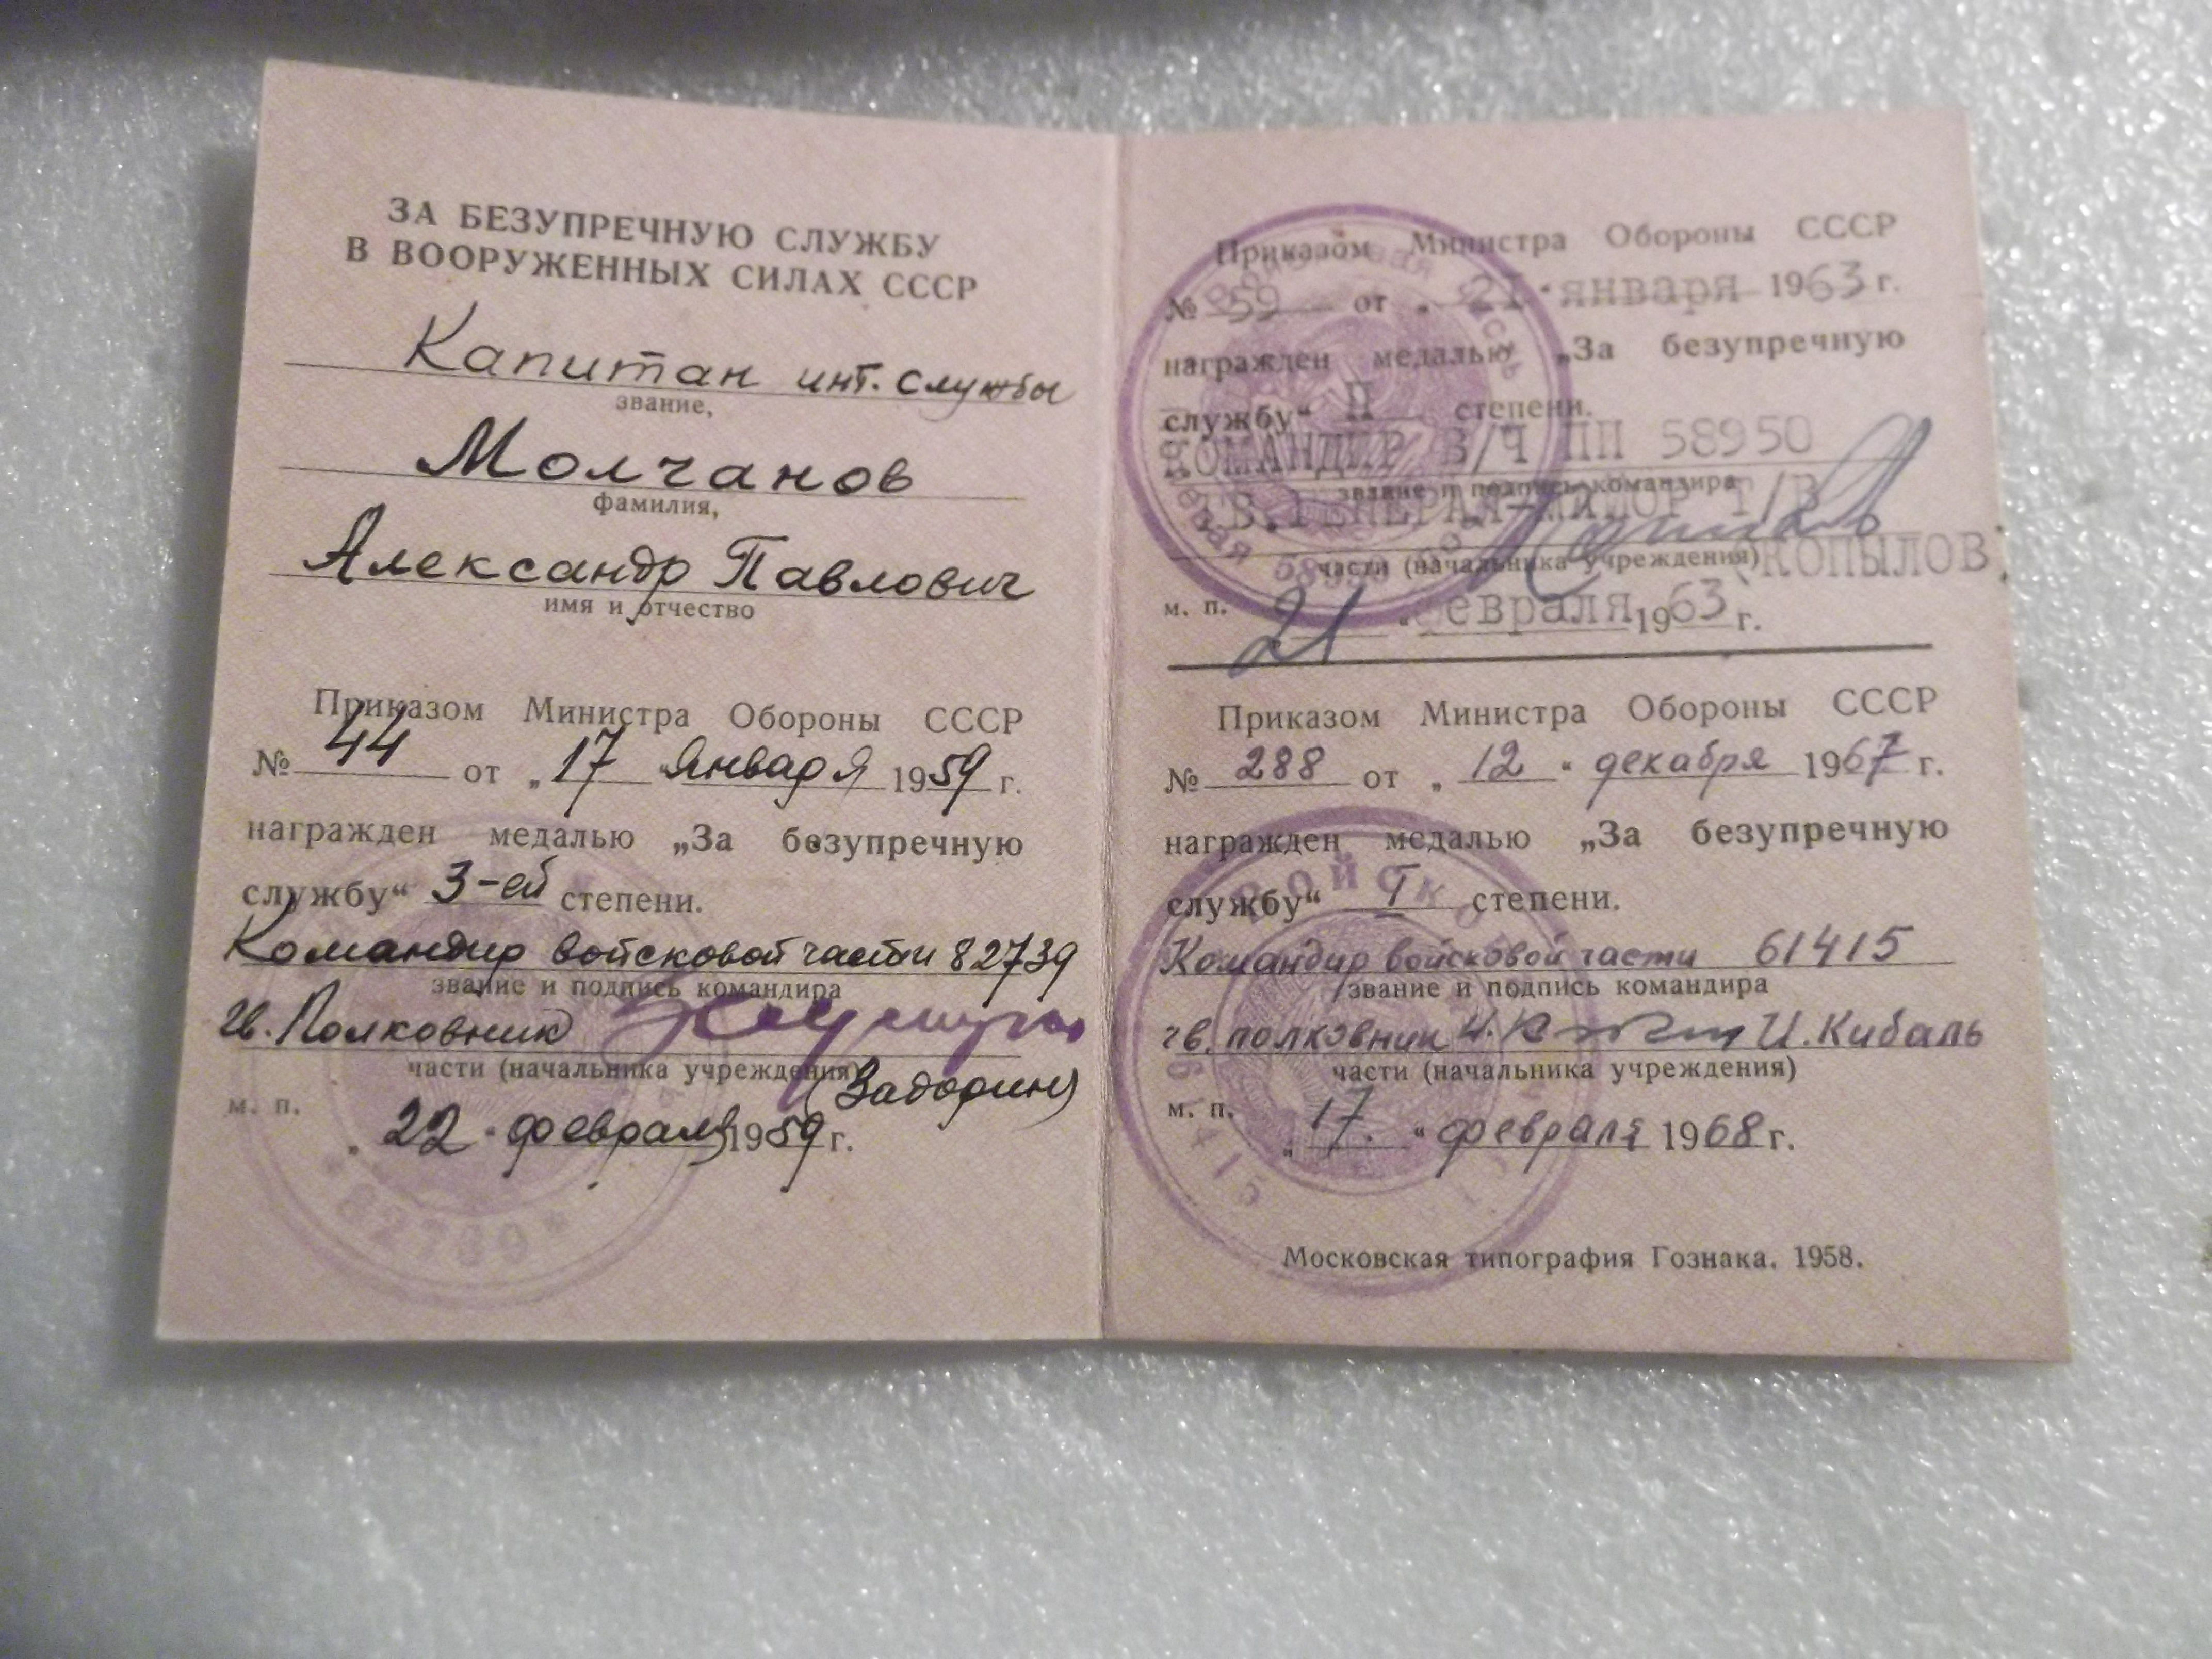 ЗА БЕЗУПРЕЧНУЮ СЛУЖБУ
В ВООРУЖЕННЫХ СИЛАХ СССР
Капитан инт. службы
звание,
Молчанов
фамилия,
Александр Павлович
имя и отчество
Приказом Министра Обороны СССР
№ 44 от „17 января 1959 г.
награжден медалью „За безупречную
службу“ 3-ей степени.
Командир войсковой части 82739
звание и подпись командира
гв. Полковник
части (начальника учреждения)
(Задорин)
м. п.
„22“ февраля 1959 г.
Приказом Министра Обороны СССР
№ 59 от „21“ января 1963 г.
награжден медалью „За безупречную
службу“ II степени.
КОМАНДИР В/Ч ПП 58950
звание и подпись командира
ГВ. ГЕНЕРАЛ-МАЙОР Т/В
части (начальника учреждения) КОПЫЛОВ
м. п. 21 “ февраля 1963 г.
Приказом Министра Обороны СССР
№ 288 от „12“ декабря 1967 г.
награжден медалью „За безупречную
службу“ I степени.
Командир войсковой части 61415
звание и подпись командира
гв. полковник И. Кибаль
части (начальника учреждения)
м. п.
„17.“ февраля 1968 г.
Московская типография Гознака. 1958.